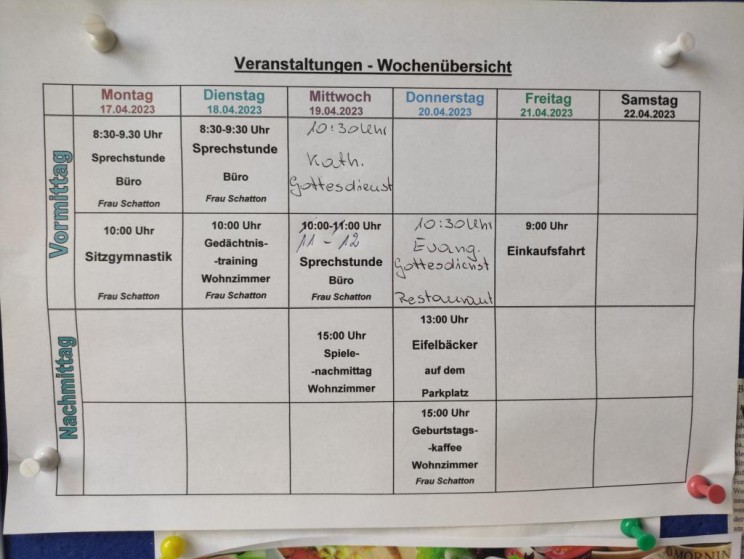 Veranstaltungen - Wochenübersicht
Montag Dienstag Mittwoch Donnerstag Freitag Samstag
17.04.2023 18.04.2023 19.04.2023 20.04.2023 21.04.2023 22.04.2023
Vormittag
8:30-9.30 Uhr
Sprechstunde
Büro
Frau Schatton
8:30-9:30 Uhr
Sprechstunde
Büro
Frau Schatton
10:30 Uhr
Kath.
Gottesdienst
10:00 Uhr
Sitzgymnastik
Frau Schatton
10:00 Uhr
Gedächtnis-
-training
Wohnzimmer
Frau Schatton
10:00-11:00 Uhr
11 - 12
Sprechstunde
Büro
Frau Schatton
10:30 Uhr
Evang.
Gottesdienst
Restaurant
9:00 Uhr
Einkaufsfahrt
Nachmittag
15:00 Uhr
Spiele-
-nachmittag
Wohnzimmer
13:00 Uhr
Eifelbäcker
auf dem
Parkplatz
15:00 Uhr
Geburtstags-
-kaffee
Wohnzimmer
Frau Schatton
MORNIN